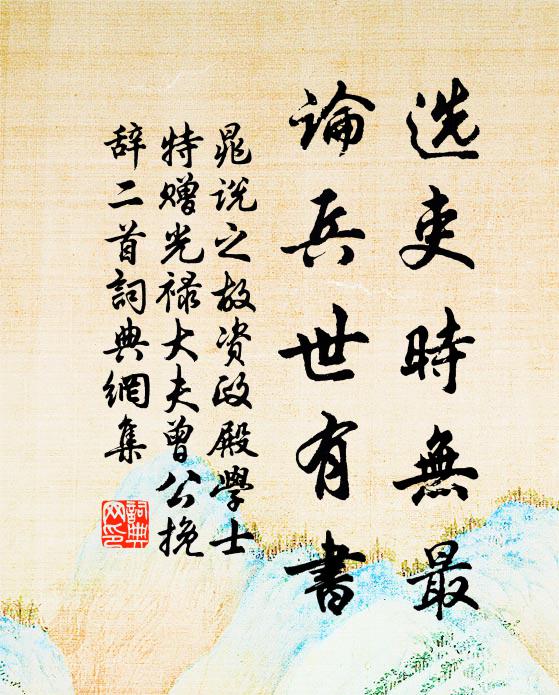 选吏時無最
論兵世有書
晁说之故资政殿學士
特赠光禄大夫曾公挽
辞二首詞典網集
詞典
网印